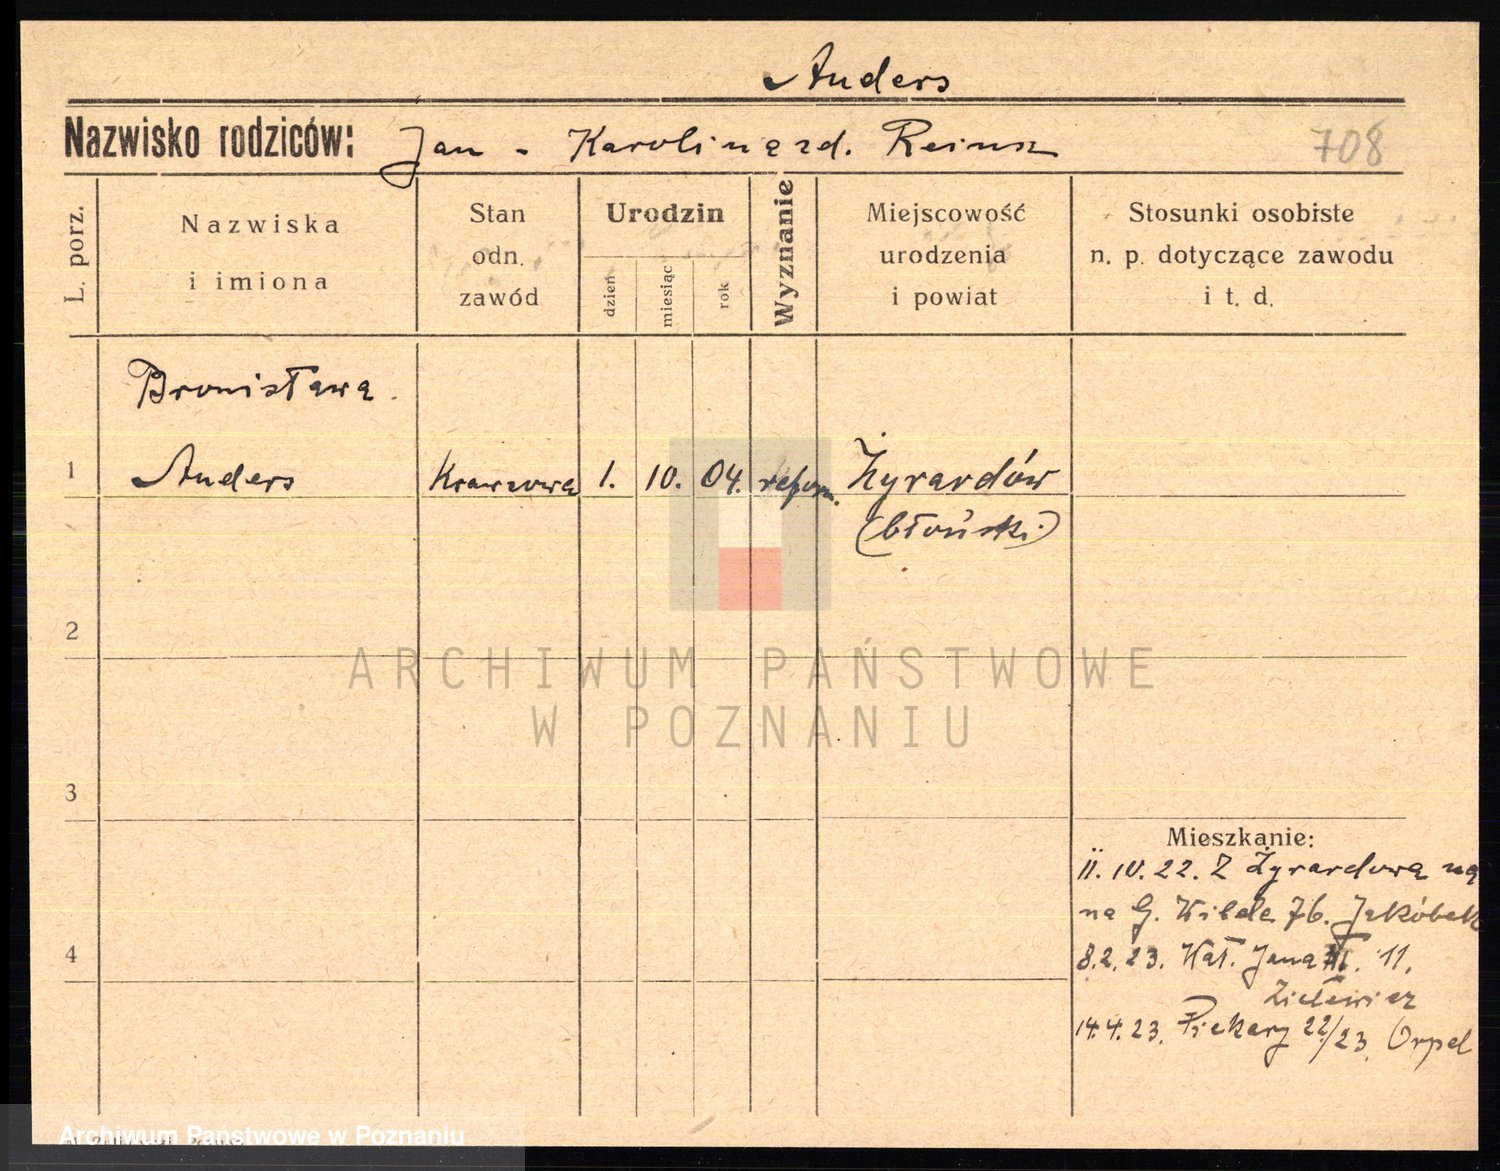 Anders
Nazwisko rodziców: Jan - Karolina zd. Reinsz
708
L. porz.
Nazwiska
i imiona
Stan
odn.
zawód
Urodzin
dzień
miesiąc
rok
Wyznanie
Miejscowość
urodzenia
i powiat
Stosunki osobiste
n. p. dotyczące zawodu
i t. d.
Bronisława.
1 Anders Krawcowa 1. 10. 04. reform. Żyrardów
(błoński)
2
ARCHIWUM PAŃSTWOWE
W POZNANIU
3
Mieszkanie:
11. 10. 22. Z Żyrardowa na
na G. Wilda 76. Jakóbek
4
8.2.23. Kat. Jana III. 11.
14.4.23. Piekary 22/23 Orpel
Archiwum Państwowe w Poznaniu